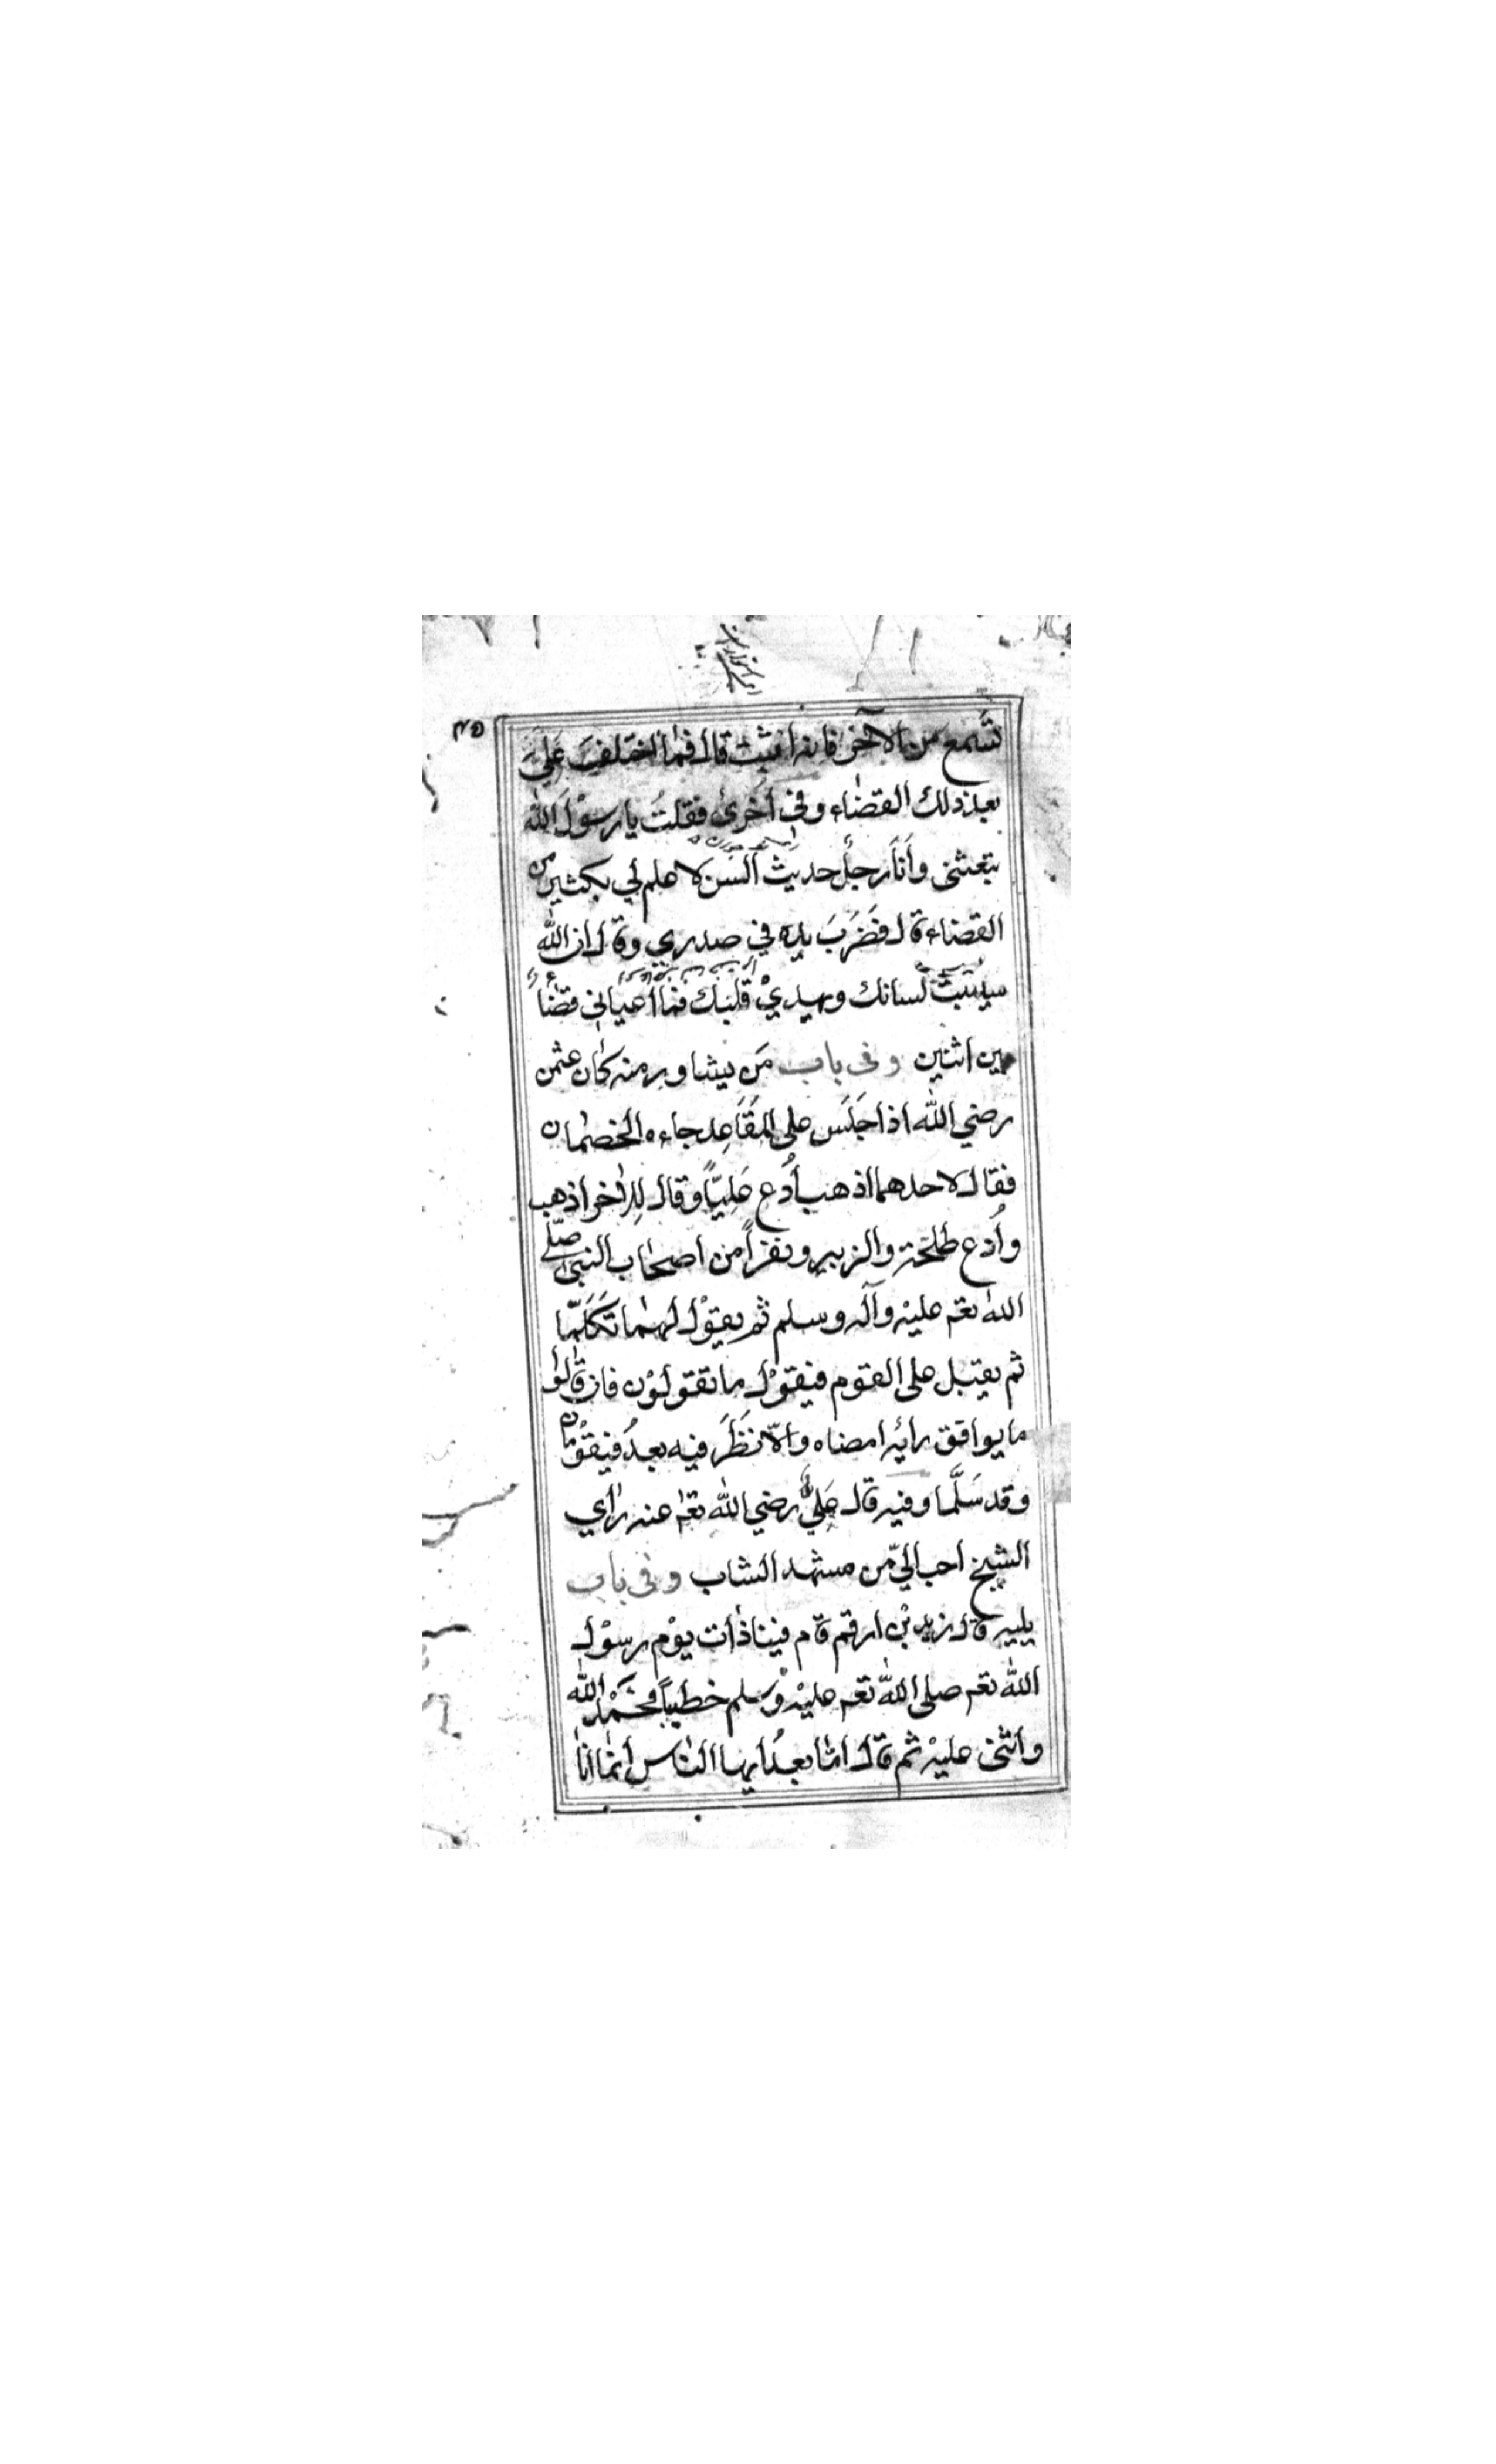 تسمع من الآخر فانه اثبت قال فما اختلف عَلَيّ
بعد ذلك القضاء وفي اُخرىٰ فقلتُ يا رسوْلَ الله
تبعثنى وأنَا رَجلٌ حديث السّن لا علم لي بكثير من
القضاء قال فضَرَبَ يده في صدري وقال ان الله
سيُثبتُ لسانك ويهديْ قَلْبَك فما أعياني قضاءٌ
بين اثنين وفى باب مَن يشاور منه كان عثمن
رضي الله اذا جَلَسَ على المَقَاعِد جاءه الخصمان
فقال لاحدهما اذهب اُدع عَلِيّاً وقال لِلآخر اذهب
واُدع طلحة والزبير ونفراً من اصحاب النبي صلّى
الله تعم عليْه وآله وسلم ثم يقوْل لهما تَكَلَّمَا
ثم يقبل على القوم فيقوْل ما تقولوْن فان قالوا
ما يوافق رائيه امضاه والّا نَظَرَ فيه بعدُ فيقوْمان
وقد سَلَّما وفيه قال عَلِيٌّ رضي الله تعم عنه رأي
الشيخ احب اليّ من مشهد الشاب وفى باب
يليه قال زيد بْن ارقم قام فينا ذات يوْم رسوْل
الله تعم صلى الله تعم عليْه وسلم خطيباً فحَمْد الله
واثنى عليْه ثم قال امّا بعدُ ايها النّاس انما انا